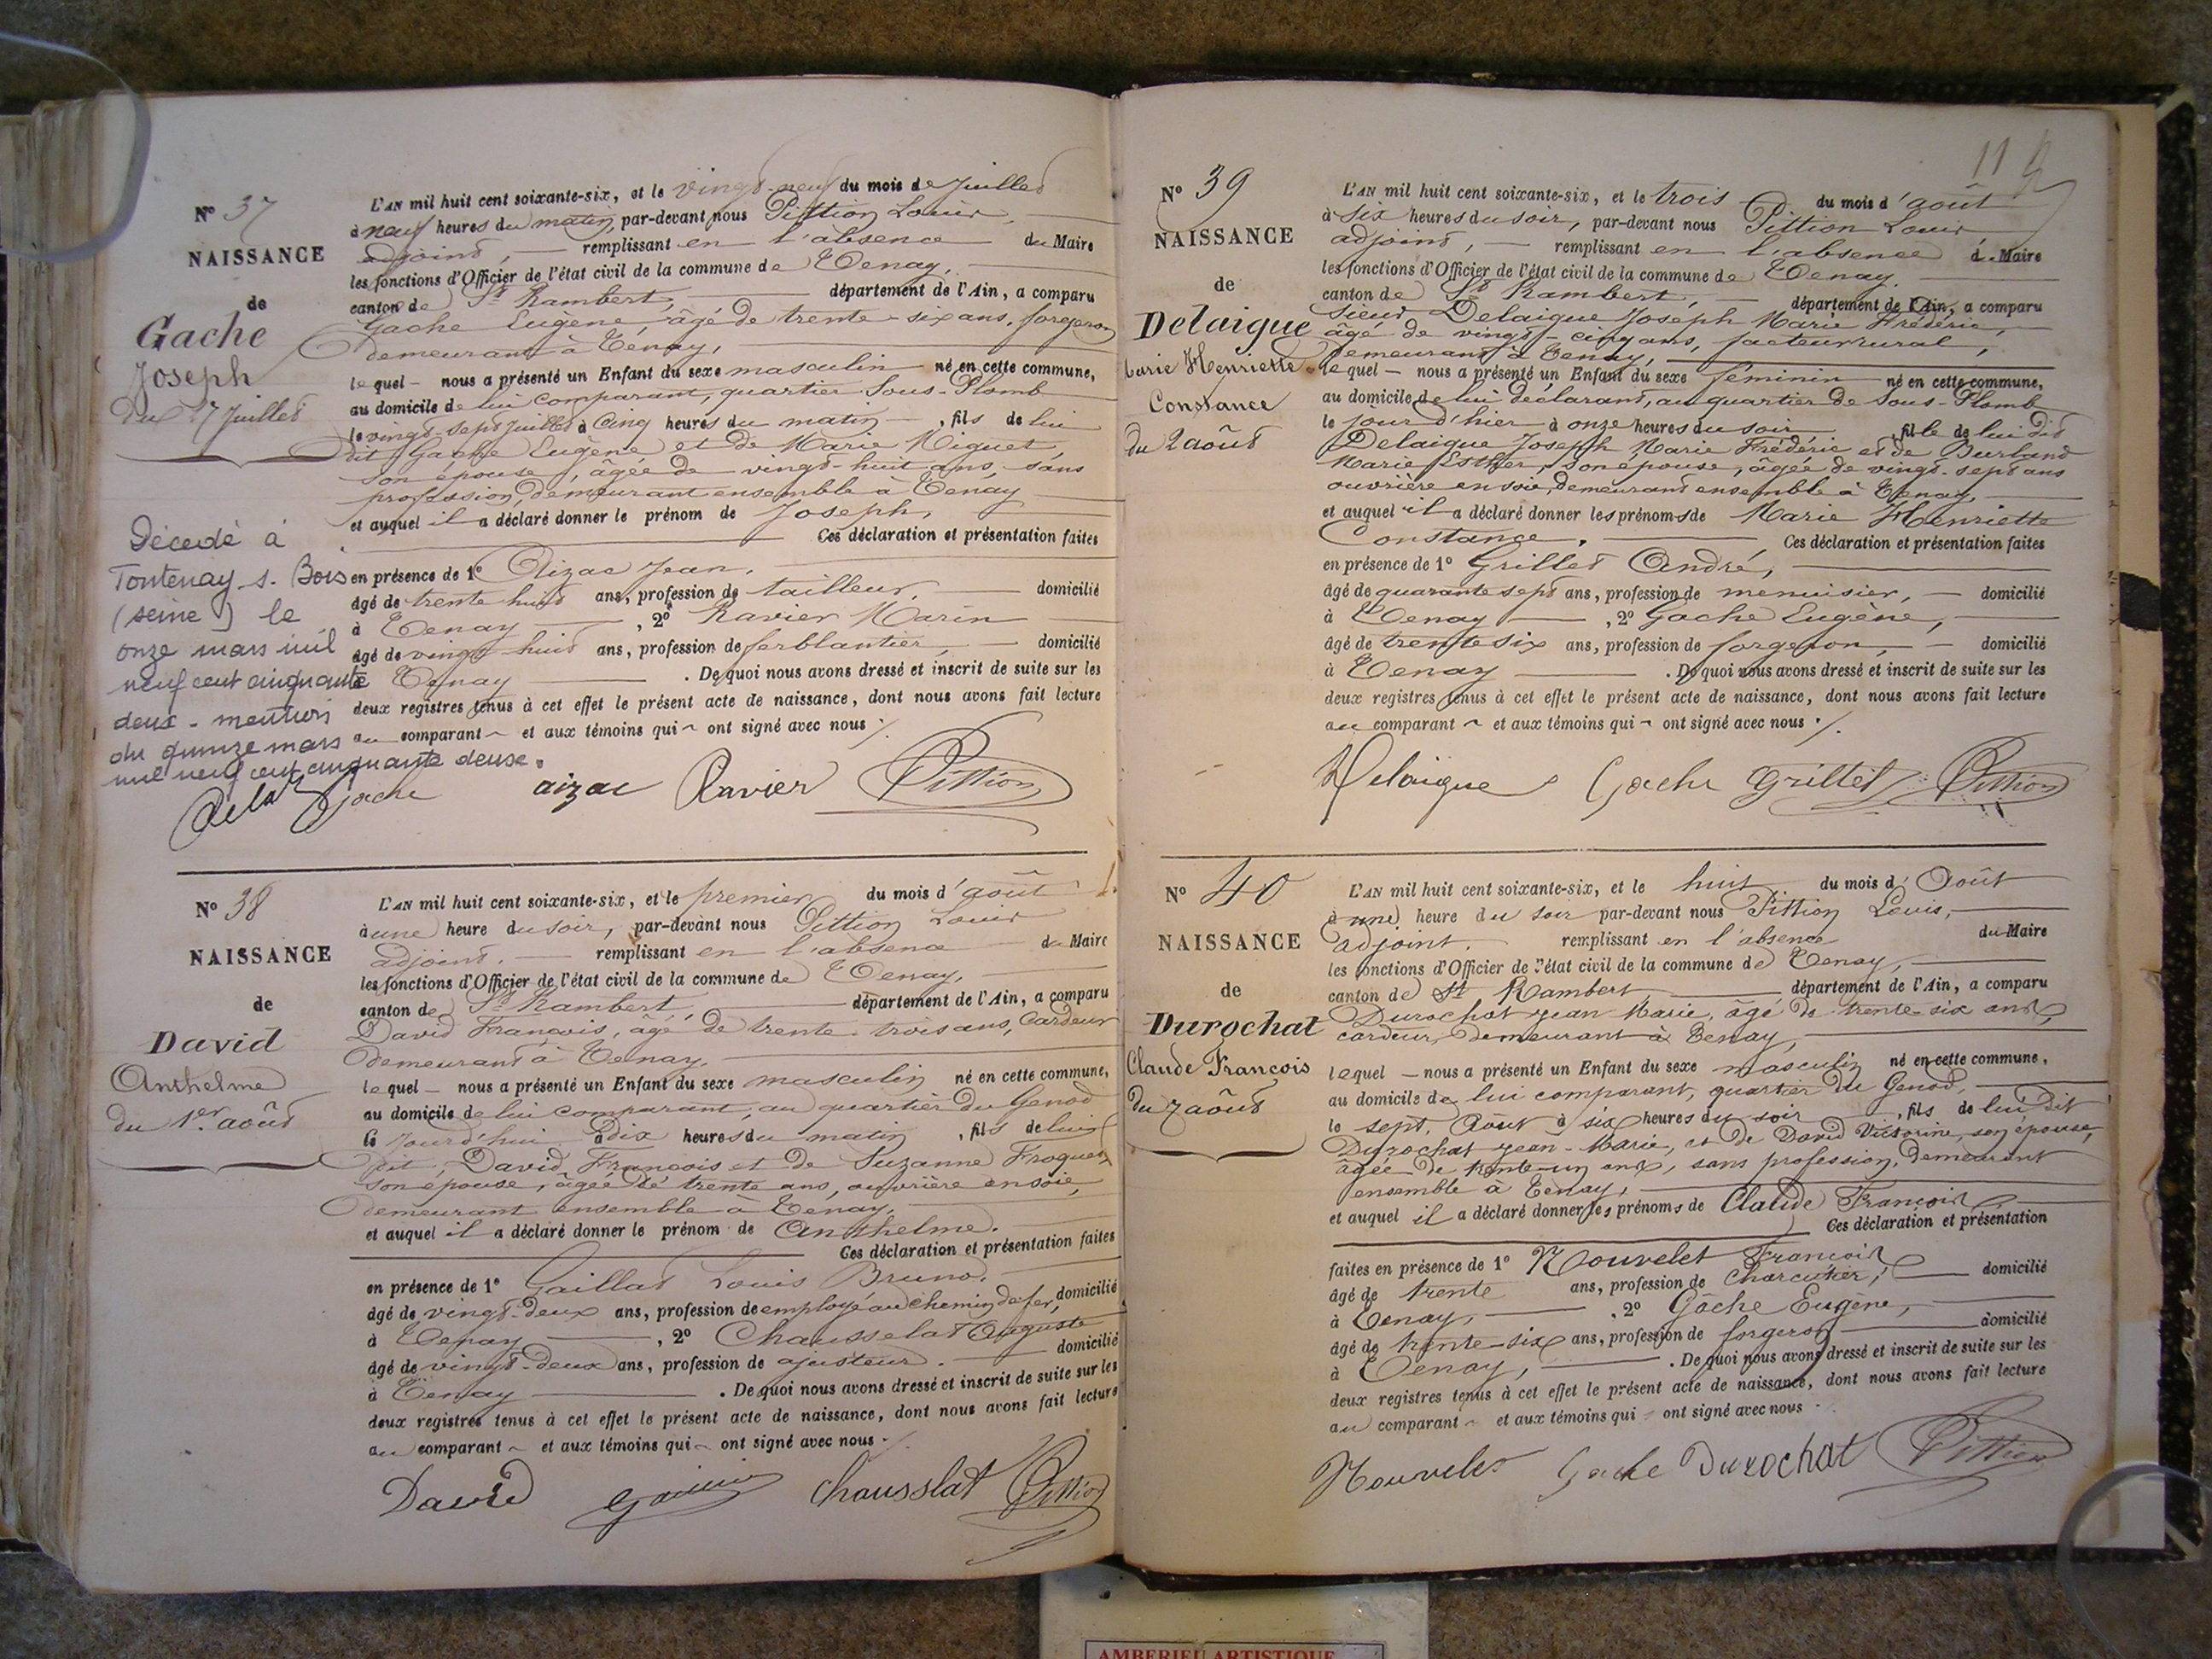 N° 37
NAISSANCE
de
Gache
Joseph
du 27 Juillet
Décédé à
Fontenay s. Bois
(seine) le
onze mars mil
neuf cent cinquante
deux - mention
du quinze mars
mil neuf cent cinquante deux.
L'AN mil huit cent soixante-six, et le vingt-neuf du mois de Juillet
à neuf heures du matin, par-devant nous Pittion Louis
adjoint, remplissant en l'absence du Maire
les fonctions d'Officier de l'état civil de la commune de Tenay,
canton de St Rambert, département de l'Ain, a comparu
Gache Eugène, âgé de trente-six ans, forgeron
demeurant à Tenay,
lequel nous a présenté un Enfant du sexe masculin né en cette commune,
au domicile de lui comparant, quartier Sous-Plomb
le vingt-sept juillet à Cinq heures du matin, fils de lui
dit Gache Eugène et de Marie Miguet,
son épouse, âgée de vingt-huit ans, sans
profession, demeurant ensemble à Tenay
et auquel il a déclaré donner le prénom de Joseph,
Ces déclaration et présentation faites
en présence de 1° Aizac Jean,
âgé de trente huit ans, profession de tailleur, domicilié
à Tenay, 2° Ravier Marin
âgé de vingt-huit ans, profession de ferblantier, domicilié
à Tenay. De quoi nous avons dressé et inscrit de suite sur les
deux registres tenus à cet effet le présent acte de naissance, dont nous avons fait lecture
au comparant et aux témoins qui ont signé avec nous ./.
Gache aizac Ravier Pittion
N° 38
NAISSANCE
de
David
Anthelme
du 1er août
L'AN mil huit cent soixante-six, et le premier du mois d'août
à une heure du soir, par-devant nous Pittion Louis
adjoint, remplissant en l'absence du Maire
les fonctions d'Officier de l'état civil de la commune de Tenay,
canton de St Rambert, département de l'Ain, a comparu
David François, âgé de trente-trois ans, Cardeur
demeurant à Tenay,
lequel nous a présenté un Enfant du sexe masculin né en cette commune,
au domicile de lui comparant, au quartier du Genod
le jourd'hui à dix heures du matin, fils de lui
dit, David François et de Suzanne
son épouse, âgée de trente ans, ouvrière en soie,
demeurant ensemble à Tenay,
et auquel il a déclaré donner le prénom de Anthelme.
Ces déclaration et présentation faites
en présence de 1° Gaillat Louis Bruno,
âgé de vingt-deux ans, profession de employé au chemin de fer, domicilié
à Tenay, 2° Chausselat Auguste
âgé de vingt-deux ans, profession de ajusteur. domicilié
à Tenay. De quoi nous avons dressé et inscrit de suite sur les
deux registres tenus à cet effet le présent acte de naissance, dont nous avons fait lecture
au comparant et aux témoins qui ont signé avec nous ./.
David chausslat Pittion
11
N° 39
NAISSANCE
de
Delaigue
Marie Henriette
Constance
du 2 août
L'AN mil huit cent soixante-six, et le trois du mois d'août
à six heures du soir, par-devant nous Pittion Louis
adjoint, remplissant en l'absence du Maire
les fonctions d'Officier de l'état civil de la commune de Tenay,
canton de St Rambert, département de l'Ain, a comparu
sieur Delaigue Joseph Marie Frédéric,
âgé de vingt-cinq ans, facteur rural,
demeurant à Tenay,
lequel nous a présenté un Enfant du sexe féminin né en cette commune,
au domicile de lui déclarant, au quartier de Sous-Plomb
le jour d'hier à onze heures du soir fille de lui dit
Delaigue Joseph Marie Frédéric et de Burland
Marie Esther, son épouse, âgée de vingt-sept ans
ouvrière en soie, demeurant ensemble à Tenay,
et auquel il a déclaré donner les prénoms de Marie Henriette
Constance. Ces déclaration et présentation faites
en présence de 1° Grillet André,
âgé de quarante sept ans, profession de menuisier, domicilié
à Tenay, 2° Gache Eugène,
âgé de trente six ans, profession de forgeron, domicilié
à Tenay. De quoi nous avons dressé et inscrit de suite sur les
deux registres tenus à cet effet le présent acte de naissance, dont nous avons fait lecture
au comparant et aux témoins qui ont signé avec nous ./.
Delaigue Gache Grillet Pittion
N° 40
NAISSANCE
de
Durochat
Claude François
du 7 août
L'AN mil huit cent soixante-six, et le huit du mois d'Août
à une heure du soir par-devant nous Pittion Louis,
adjoint. remplissant en l'absence du Maire
les fonctions d'Officier de l'état civil de la commune de Tenay,
canton de St Rambert département de l'Ain, a comparu
Durochat Jean Marie, âgé de trente-six ans,
cardeur, demeurant à Tenay,
lequel nous a présenté un Enfant du sexe masculin né en cette commune,
au domicile de lui comparant, quartier du Genod,
le sept Août à six heures du soir, fils de lui dit
Durochat Jean-Marie, et de David Victorine, son épouse,
âgée de trente-un ans, sans profession, demeurant
ensemble à Tenay,
et auquel il a déclaré donner les prénoms de Claude François
Ces déclaration et présentation
faites en présence de 1° Nouvelet François
âgé de trente ans, profession de Charcutier, domicilié
à Tenay, 2° Gâche Eugène,
âgé de trente-six ans, profession de forgeron domicilié
à Tenay, . De quoi nous avons dressé et inscrit de suite sur les
deux registres tenus à cet effet le présent acte de naissance, dont nous avons fait lecture
au comparant et aux témoins qui ont signé avec nous
Nouvelet Gache Durochat Pittion
AMBERIEU ARTISTIQUE